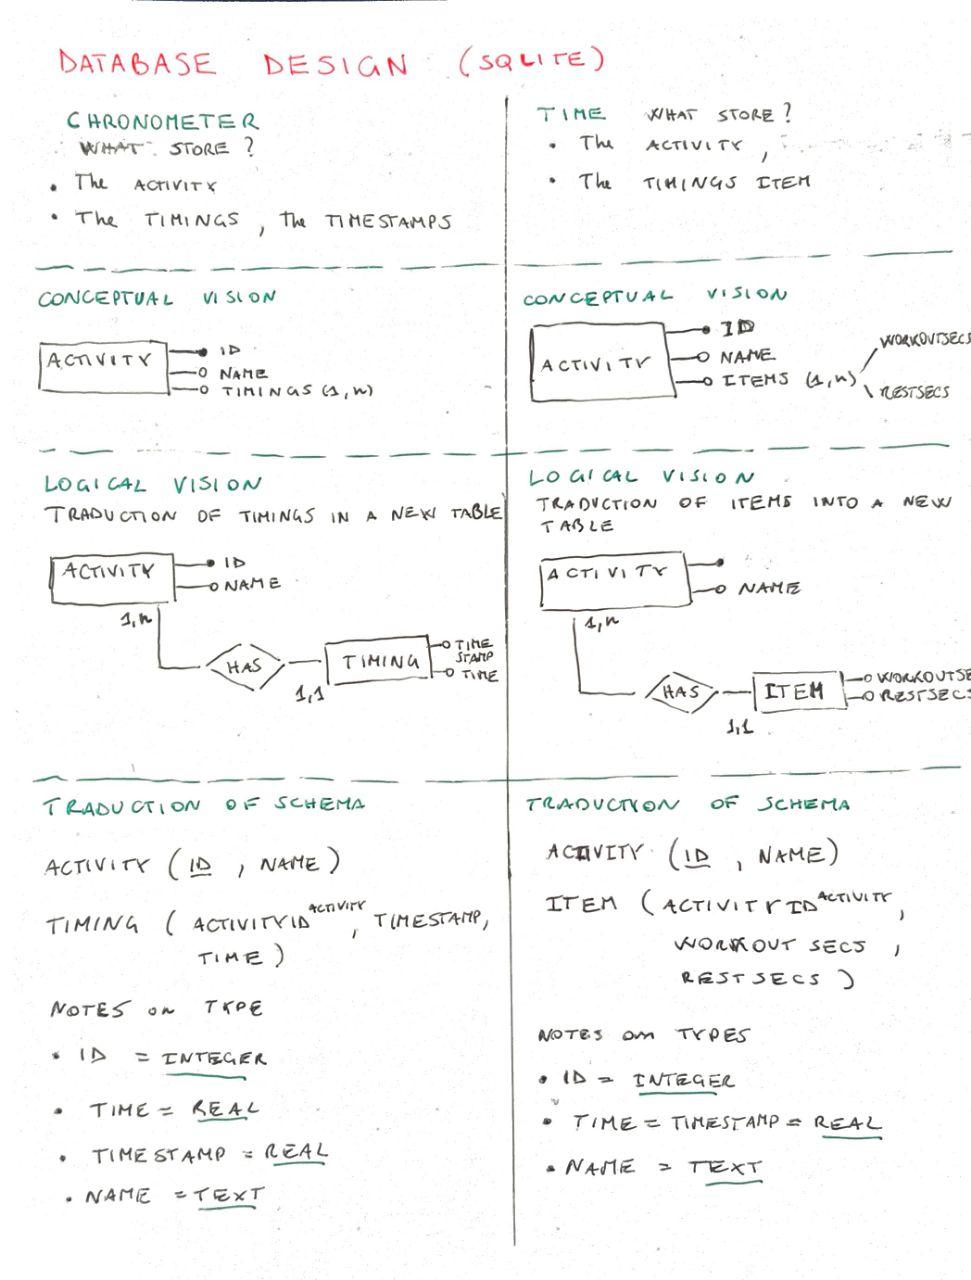 DATABASE DESIGN (SQLITE)
CHRONOMETER
WHAT STORE?
• The ACTIVITY
• The TIMINGS, the TIMESTAMPS
CONCEPTUAL VISION
ACTIVITY
ID
NAME
TIMINGS (1,n)
LOGICAL VISION
TRADUCTION OF TIMINGS IN A NEW TABLE
ACTIVITY
ID
NAME
1,n
HAS
1,1
TIMING
TIME
STAMP
TIME
TRADUCTION OF SCHEMA
ACTIVITY (ID, NAME)
TIMING (ACTIVITYID ACTIVITY, TIMESTAMP,
TIME)
NOTES on TYPE
• ID = INTEGER
• TIME = REAL
• TIMESTAMP = REAL
• NAME = TEXT
TIME WHAT STORE?
• The ACTIVITY,
• The TIMINGS ITEM
CONCEPTUAL VISION
ACTIVITY
ID
NAME
ITEMS (1,n)
WORKOUTSECS
RESTSECS
LOGICAL VISION
TRADUCTION OF ITEMS INTO A NEW
TABLE
ACTIVITY
NAME
1,n
HAS
1,1
ITEM
WORKOUTSE
RESTSECS
TRADUCTION OF SCHEMA
ACTIVITY (ID, NAME)
ITEM (ACTIVITYID ACTIVITY,
WORKOUT SECS,
REST SECS)
NOTES on TYPES
• ID = INTEGER
• TIME = TIMESTAMP = REAL
• NAME = TEXT